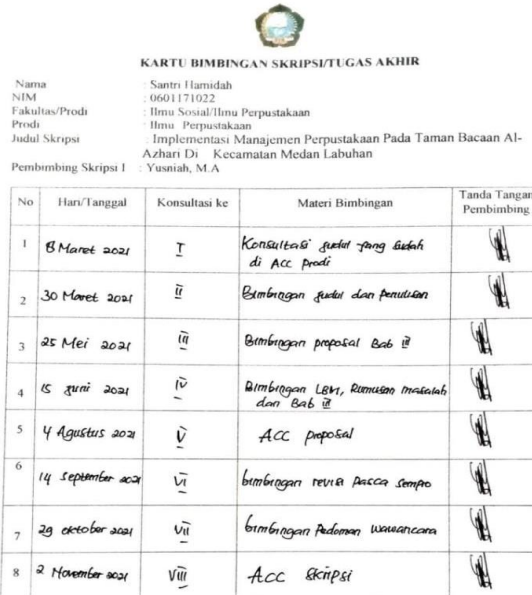 KARTU BIMBINGAN SKRIPSI/TUGAS AKHIR
Nama : Santri Hamidah
NIM : 0601171022
Fakultas/Prodi : Ilmu Sosial/Ilmu Perpustakaan
Prodi : Ilmu Perpustakaan
Judul Skripsi : Implementasi Manajemen Perpustakaan Pada Taman Bacaan Al-
Azhari Di Kecamatan Medan Labuhan
Pembimbing Skripsi I : Yusniah, M.A
No Hari/Tanggal Konsultasi ke Materi Bimbingan Tanda Tangan
Pembimbing
1 8 Maret 2021 I Konsultasi judul yang sudah
di ACC prodi
2 30 Maret 2021 II Bimbingan judul dan penulisan
3 25 Mei 2021 III Bimbingan proposal Bab III
4 15 Juni 2021 IV Bimbingan LBM, Rumusan masalah
dan Bab III
5 4 Agustus 2021 V ACC proposal
6 14 September 2021 VI bimbingan revisi Pasca Sempro
7 29 Oktober 2021 VII bimbingan Pedoman wawancara
8 2 November 2021 VIII ACC Skripsi